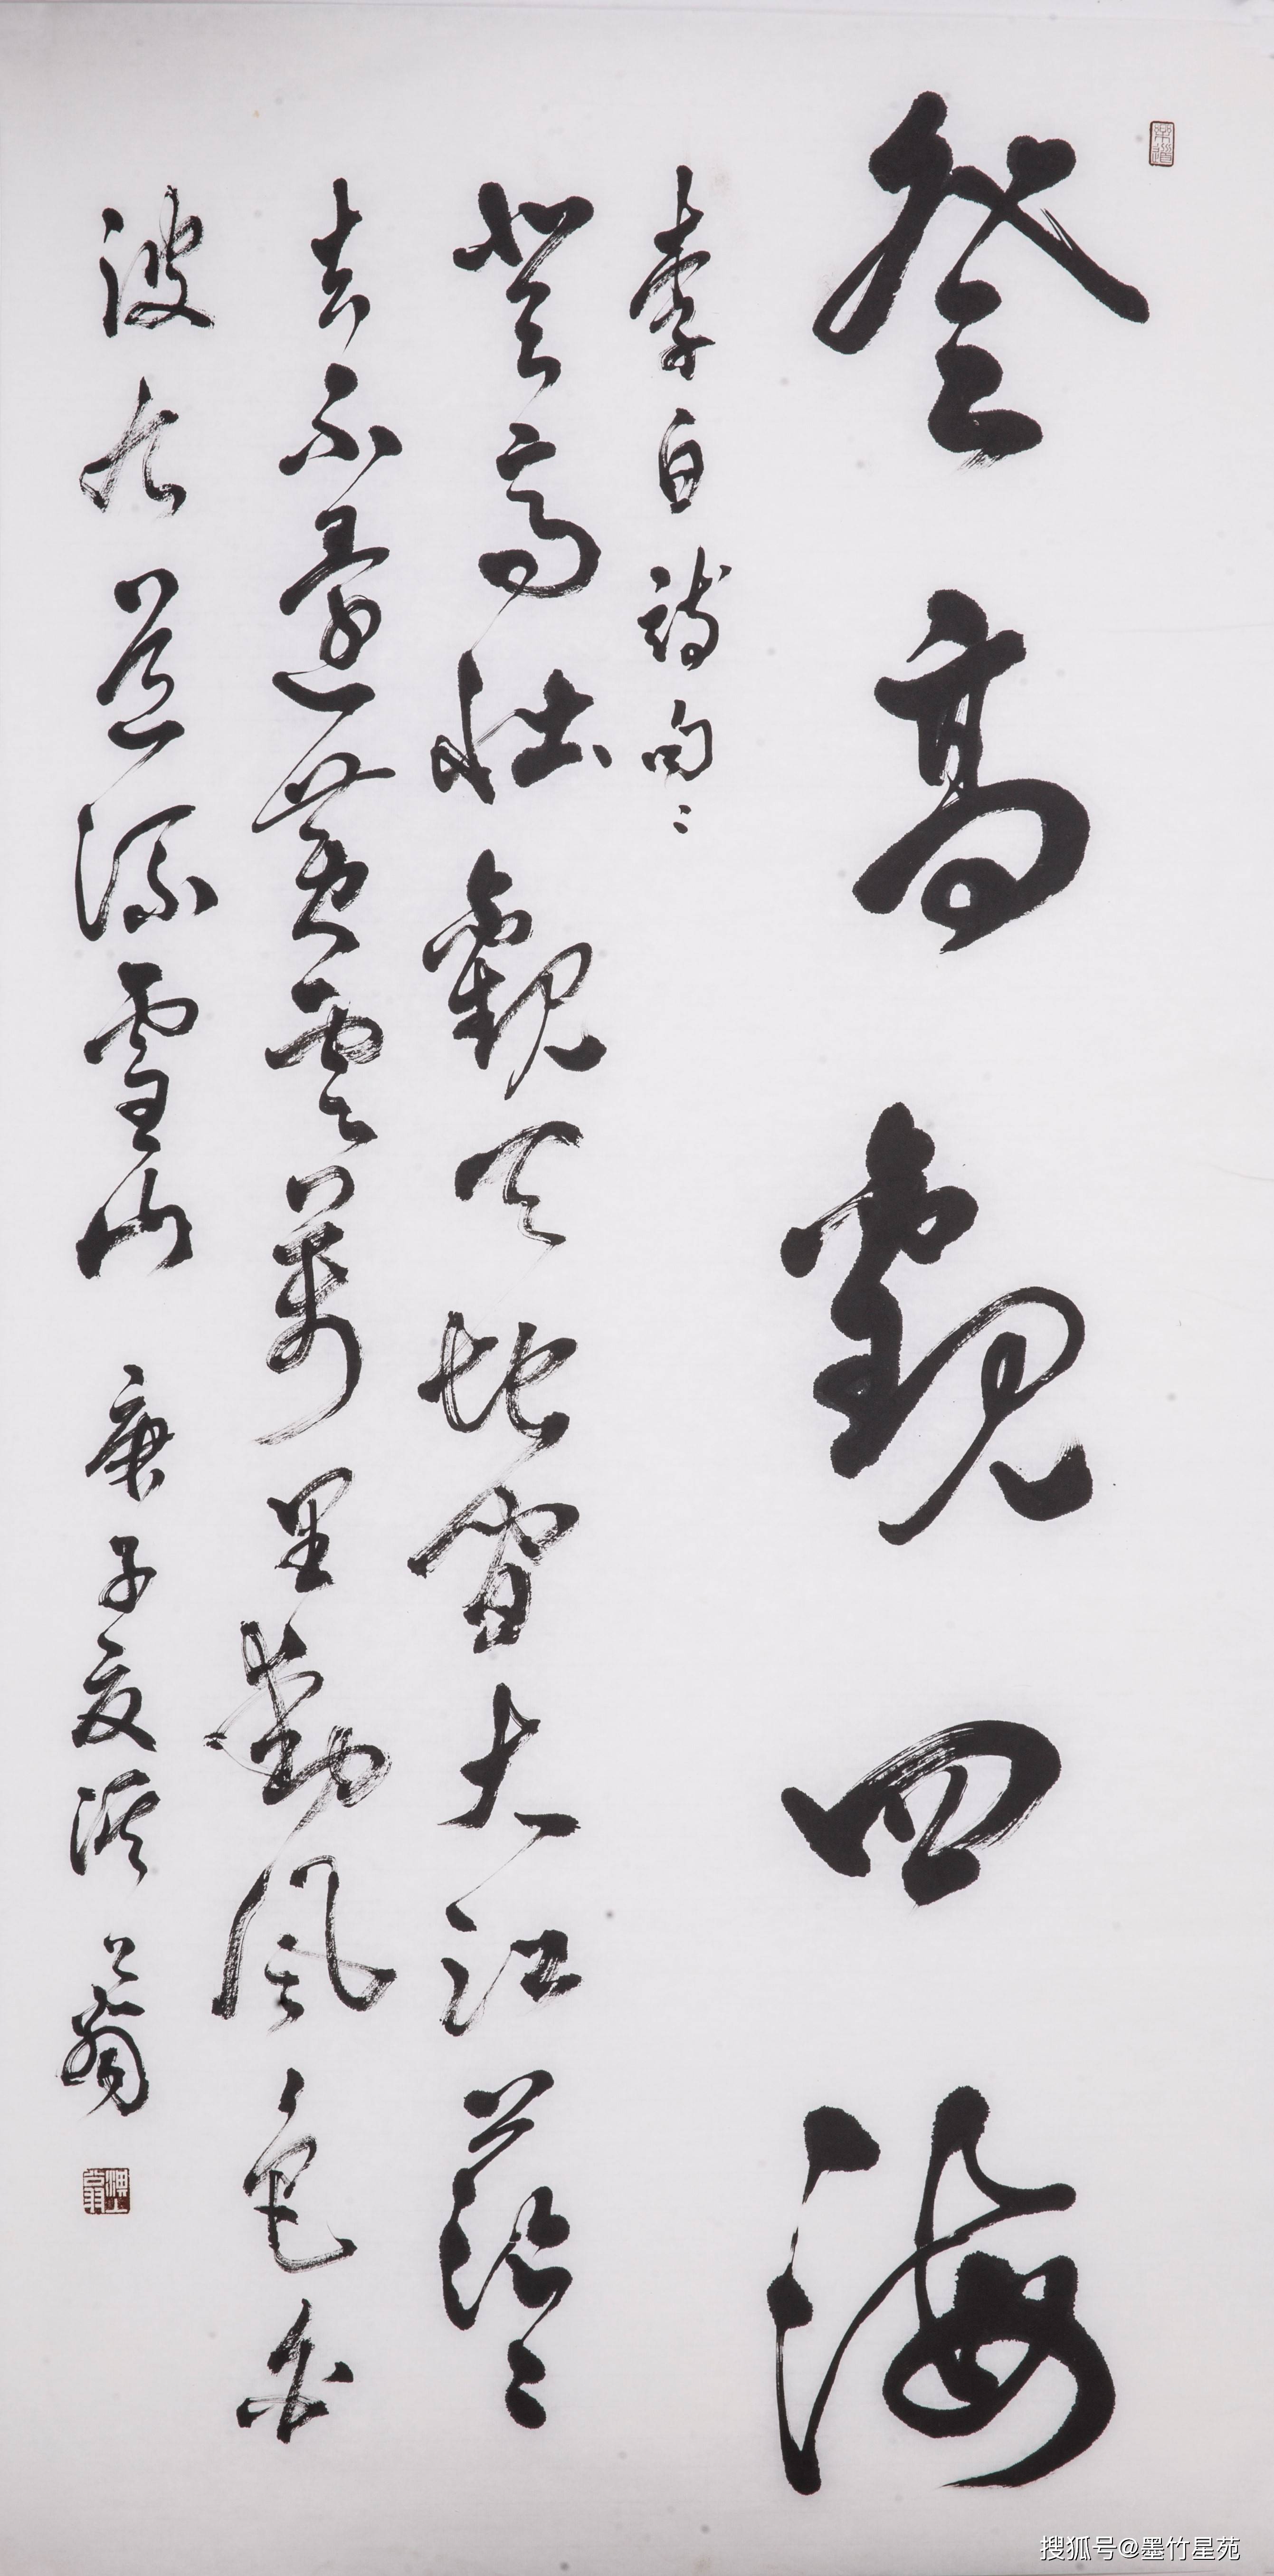 登高觀四海
李白詩句〻
登高壯觀天地間大江茫〻
去不還黃雲萬里動風色白
波九道流雪山 庚子夏溪上翁
搜狐号@墨竹星苑